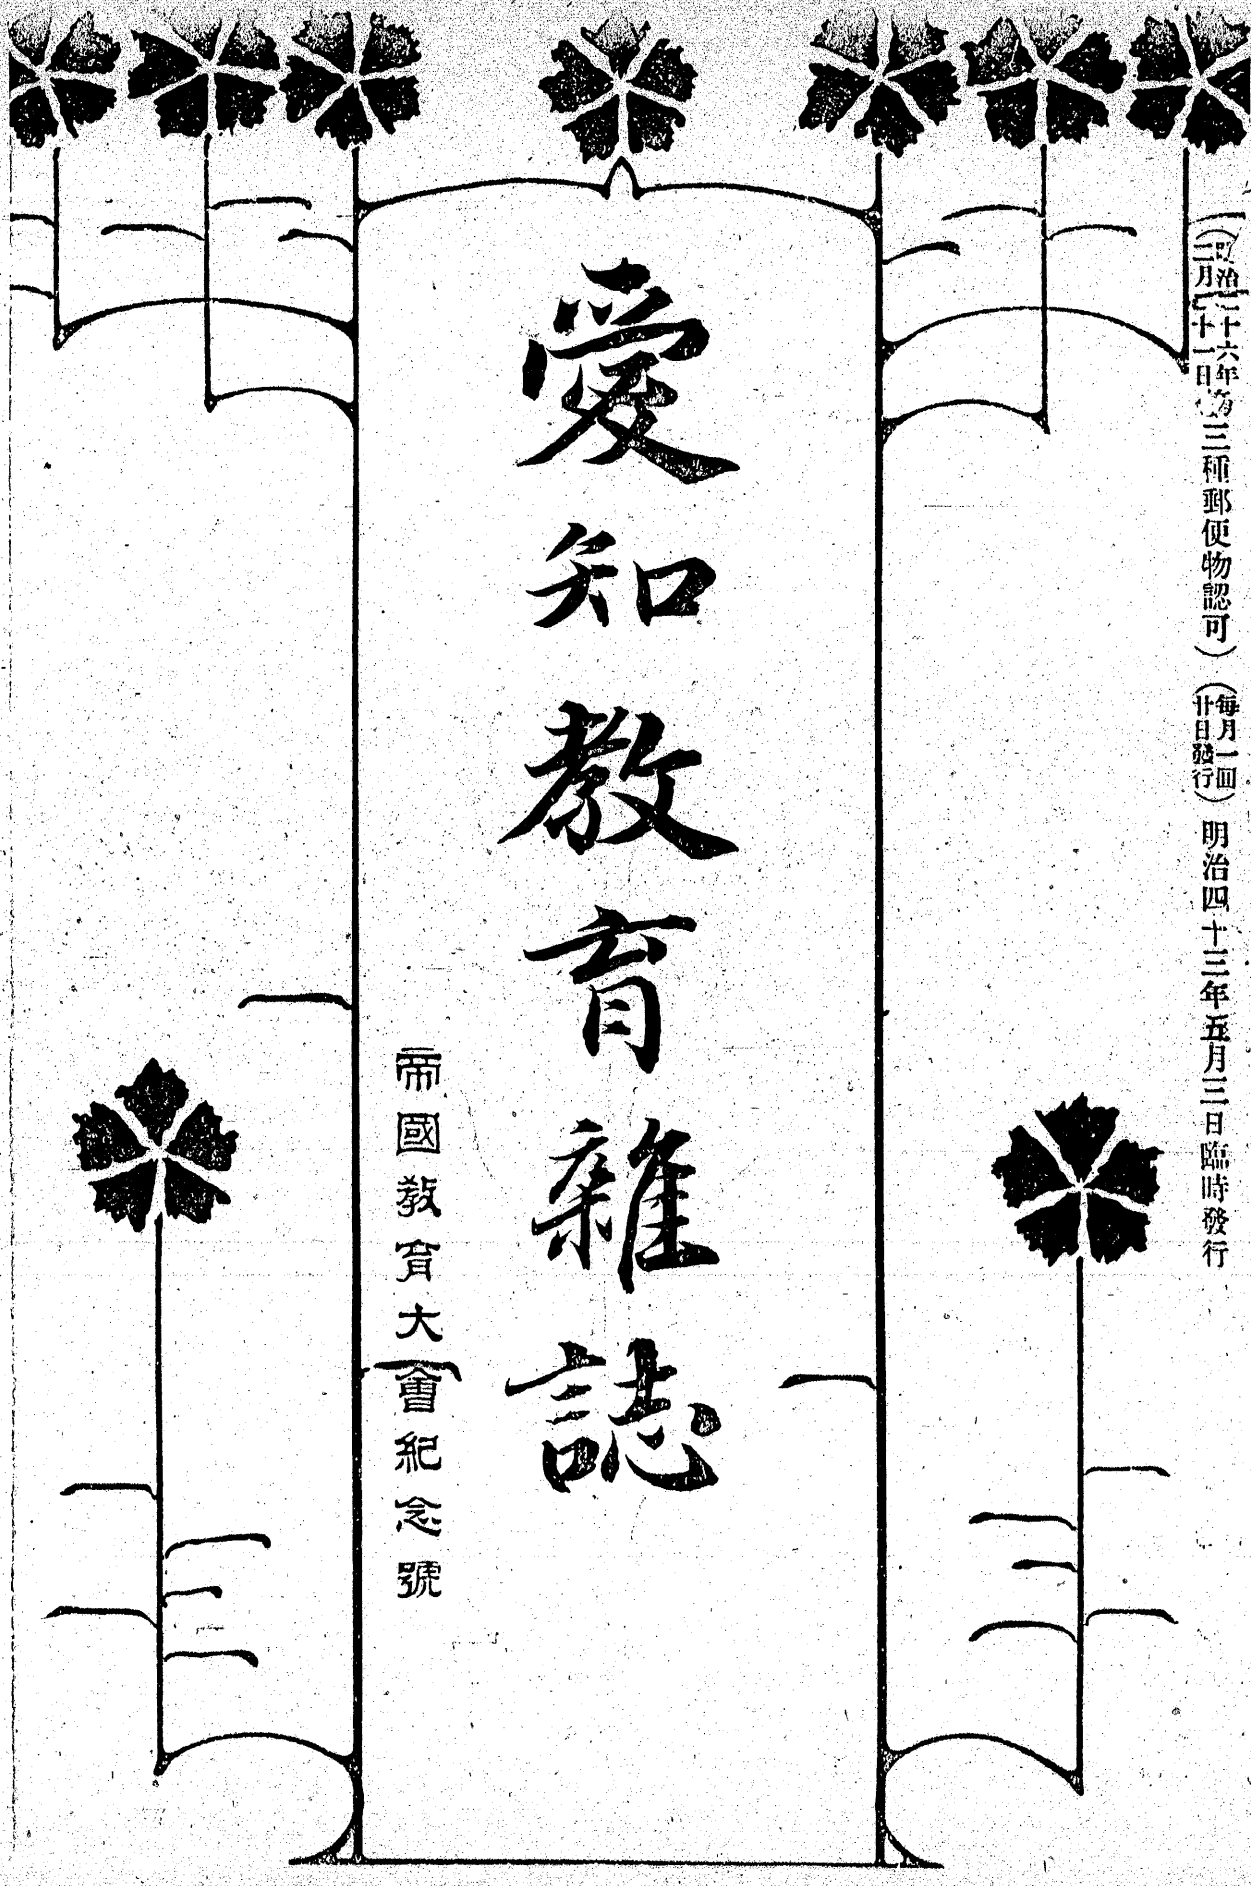 明治
十六年
月
十一日
三種郵便物認可）（毎月一回
廿日發行）明治四十三年五月三日臨時發行
愛知教育雜誌
帝國教育大會紀念號